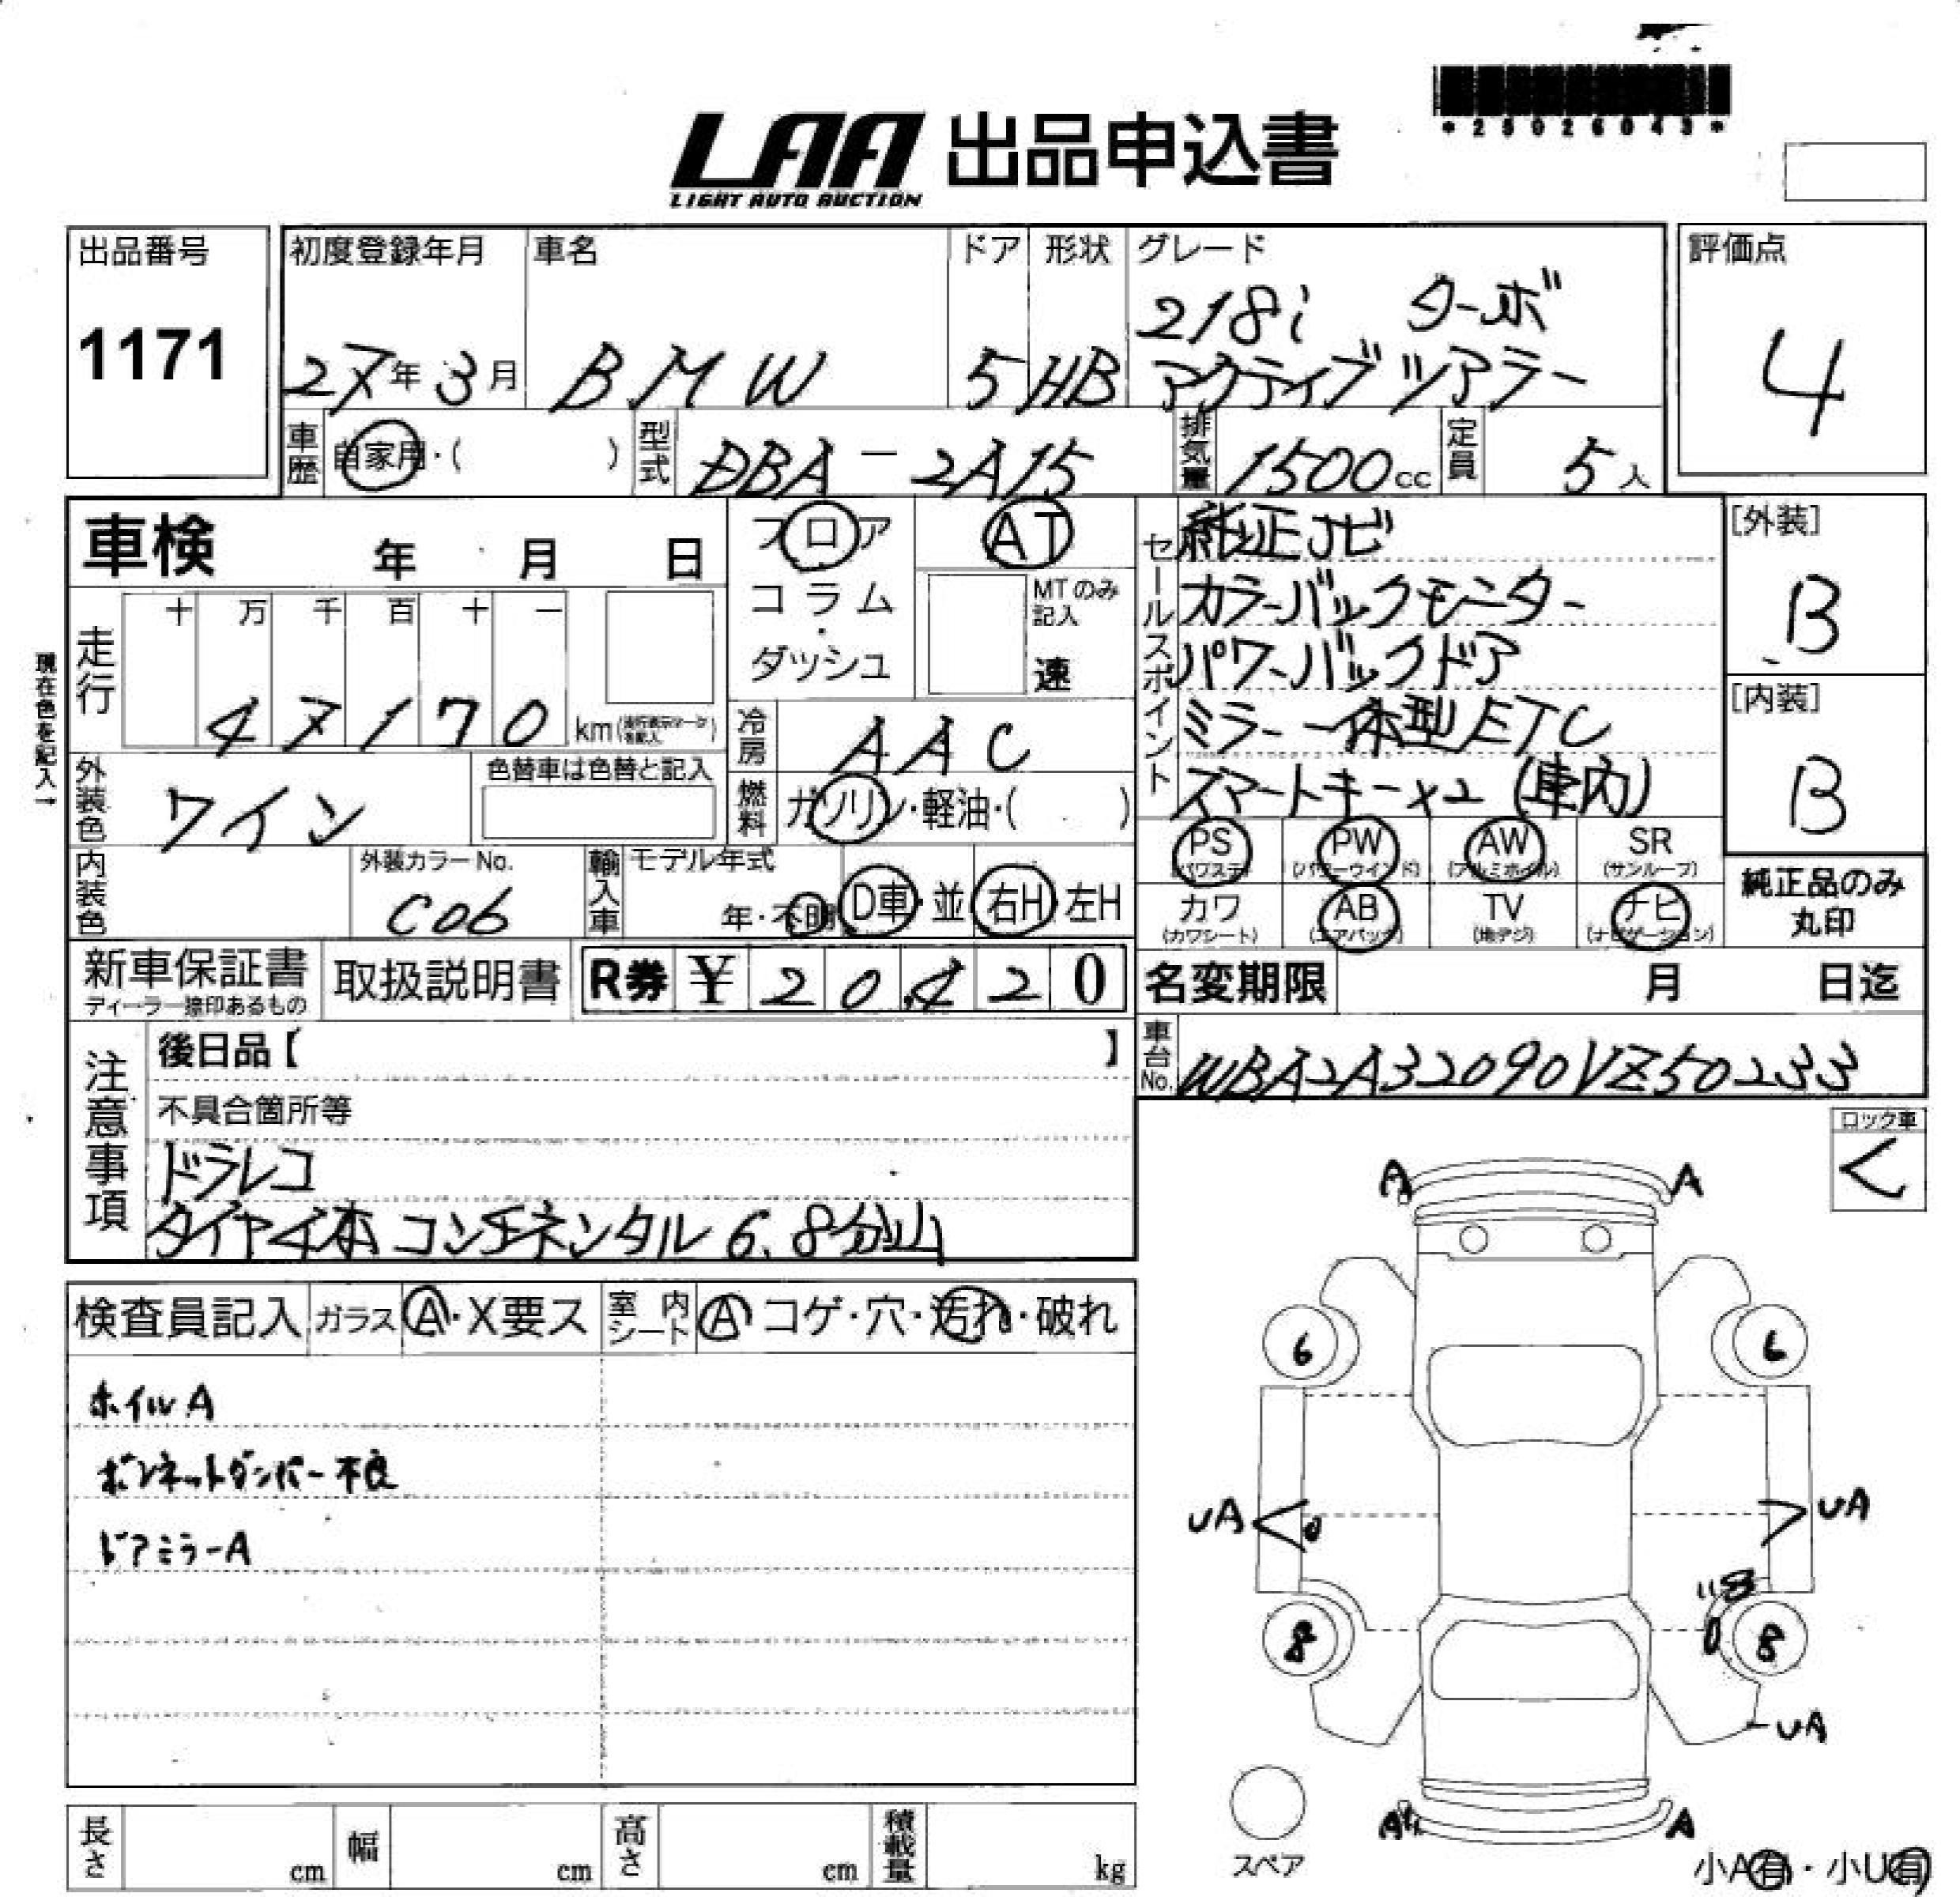 *25026043*
LAA 出品申込書
LIGHT AUTO AUCTION
出品番号
1171
初度登録年月
27年3月
車名
BMW
ドア
5
形状
HB
グレード
218i ターボ
アクティブツアラー
評価点
4
車歴 自家用・( )
型式 DBA-2A15
排気量 1500cc
定員 5人
車検 年 月 日
フロア
コラム
・
ダッシュ
AT
MTのみ
記入
速
セールスポイント
純正ナビ
カラーバックモニター
パワーバックドア
ミラー一体型ETC
スマートキー×2 (車内)
[外装]
B
[内装]
B
現在色を記入→
走行
十 万 千 百 十 一
47170 km
冷房 AAC
外装色 ワイン
色替車は色替と記入
燃料 ガソリン・軽油・( )
内装色
外装カラーNo.
C06
輸入車
モデル年式
年・不明
D車・並
右H・左H
PS
(パワステ)
PW
(パワーウインド)
AW
(アルミホイル)
SR
(サンルーフ)
カワ
(カワシート)
AB
(エアバック)
TV
(地デジ)
ナビ
(ナビゲーション)
純正品のみ
丸印
新車保証書
ディーラー捺印あるもの
取扱説明書
R券 ¥20,420
名変期限 月 日迄
車台No. WBA2A32090VZ50233
注意事項
後日品【 】
不具合箇所等
ドラレコ
タイヤ4本 コンチネンタル 6.8分山
ロック車
く
検査員記入
ガラス A・X要ス
室内シート A コゲ・穴・汚れ・破れ
ホイルA
ボンネットダンパー不良
ドアミラーA
A A
6 6
UA UA
8 8
UA
A A
スペア
小A有・小U有
長さ cm
幅 cm
高さ cm
積載量 kg